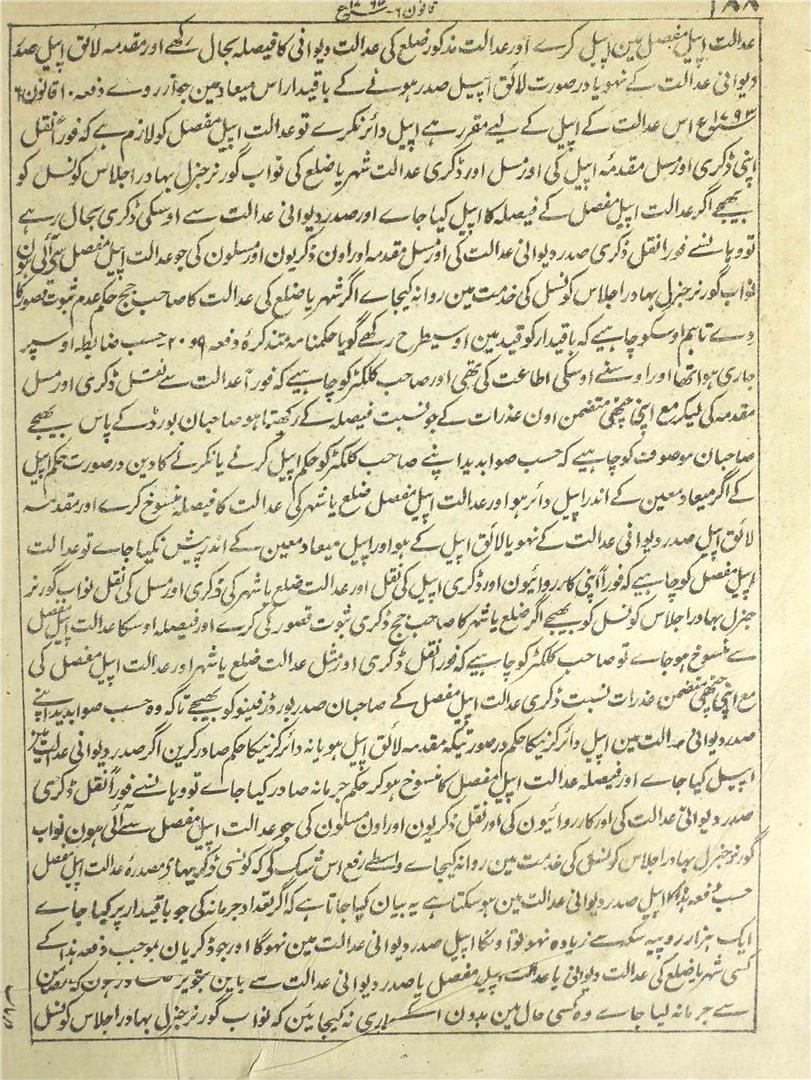 ۱۸۸ قانون ۶ ۱۷۹۳ع
عدالت اپیل مفصل مین اپیل کرے اور عدالت مذکور ضلع کی عدالت دیوانی کا فیصلہ بحال رکھے اور مقدمہ لائق اپیل صدر
دیوانی عدالت کے نہو یا درصورت لائق اپیل صدر ہونے کے باقیدار اس میعاد مین جو از روے دفعہ ۱۰ قانون ۶
۱۷۹۳ع اس عدالت کے اپیل کے لیے مقرر ہے اپیل دائر نکرے تو عدالت اپیل مفصل کو لازم ہے کہ فوراً نقل
اپنی ڈکری اور مسل مقدمۂ اپیل کی اور مسل اور ڈکری عدالت شہر یا ضلع کی نواب گورنر جنرل بہادر اجلاس کونسل کو
بھیجے اگر عدالت اپیل مفصل کے فیصلہ کا اپیل کیا جاے اور صدر دیوانی عدالت سے اوسکی ڈکری بحال رہے
تو وہانسے فوراً نقل ڈکری صدر دیوانی عدالت کی اور مسل مقدمہ اور اون ڈکریون اور مسلون کی جو عدالت اپیل مفصل سے آئی ہون
نواب گورنر جنرل بہادر اجلاس کونسل کی خدمت مین روانہ کیجاے اگر شہر یا ضلع کی عدالت کا صاحب جج حکم عدم ثبوت قصور کا
دے تاہم اوسکو چاہیے کہ باقیدار کو قید مین اوسیطرح رکھے گویا حکمنامہ متذکرۂ دفعہ ۹ و ۲۰ حسب ضابطہ اوسپر
جاری ہوا تھا اور اوسنے اوسکی اطاعت کی تھی اور صاحب کلکٹر کو چاہیے کہ فوراً عدالت سے نقل ڈکری اور مسل
مقدمہ کی لیکر مع اپنی چٹھی متضمن اون عذرات کے جو نسبت فیصلہ کے رکھتا ہو صاحبان بورڈ کے پاس بھیجے
صاحبان موصوف کو چاہیے کہ حسب صوابدید اپنے صاحب کلکٹر کو حکم اپیل کرنے یا نکرنے کا دین درصورت حکم اپیل
کے اگر میعاد معین کے اندر اپیل دائر ہو اور عدالت اپیل مفصل ضلع یا شہر کی عدالت کا فیصلہ منسوخ کرے اور مقدمہ
لائق اپیل صدر دیوانی عدالت کے نہو یا لائق اپیل کے ہو اور اپیل میعاد معین کے اندر پیش نکیا جاے تو عدالت
اپیل مفصل کو چاہیے کہ فوراً اپنی کارروائیون اور ڈکری اپیل کی نقل اور عدالت ضلع یا شہر کی ڈکری اور مسل کی نقل نواب گورنر
جنرل بہادر اجلاس کونسل کو بھیجے اگر ضلع یا شہر کا صاحب جج ڈکری ثبوت قصور کی کرے اور فیصلہ اوسکا عدالت اپیل مفصل
سے منسوخ ہوجاے تو صاحب کلکٹر کو چاہیے کہ فوراً نقل ڈکری اور مثل عدالت ضلع یا شہر اور عدالت اپیل مفصل کی
مع اپنی چٹھی متضمن عذرات نسبت ڈکری عدالت اپیل مفصل کے صاحبان صدر بورڈ رفینو کو بھیجے تاکہ وہ حسب صوابدید اپنے
صدر دیوانی عدالت مین اپیل دائر کرنیکا حکم درصورتیکہ مقدمہ لائق اپیل ہو یا نہ دائر کرنیکا حکم صادر کرین اگر صدر دیوانی عدالت مین
اپیل کیا جاے اور فیصلہ عدالت اپیل مفصل کا منسوخ ہوکر حکم جرمانہ صادر کیا جاے تو وہانسے فوراً نقل ڈکری
صدر دیوانی عدالت کی اور کارروائیون کی اور نقل ڈکریون اور اون مسلون کی جو عدالت اپیل مفصل سے آئی ہون نواب
گورنر جنرل بہادر اجلاس کونسل کی خدمت مین روانہ کیجاے واسطے رفع اس شک کے کہ کونسی ڈکریہاے مصدرۂ عدالت اپیل مفصل
حسب دفعہ ہذا کا اپیل صدر دیوانی عدالت مین ہوسکتا ہے یہ بیان کیا جاتا ہے کہ اگر تعداد جرمانہ کی جو باقیدار پر کیا جاے
ایک ہزار روپیہ سکہ سے زیادہ نہو تو اوسکا اپیل صدر دیوانی عدالت مین نہوگا اور جو ڈکریان بموجب دفعہ ہذا کے
کسی شہر یا ضلع کی عدالت دیوانی یا عدالت اپیل مفصل یا صدر دیوانی عدالت سے باین تجویز صادر ہون کہ
سے جرمانہ لیا جاے وہ کسی حال مین بدون اسکے جاری نہ کیجائین کہ نواب گورنر جنرل بہادر اجلاس کونسل